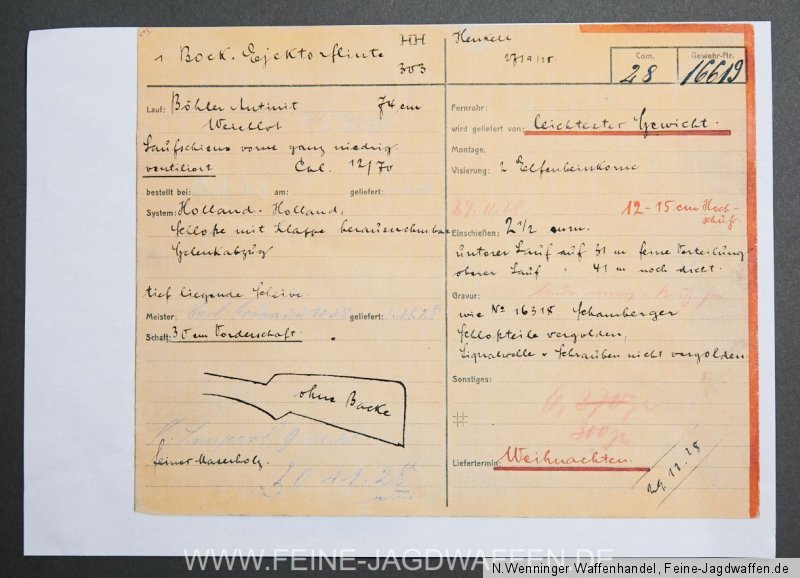 1 Bock. Ejektorflinte
303
Henkell
Com.
28
Gewehr-Nr.
16619
Lauf: Böhler Antinit 74 cm
Laufschiene vorne ganz niedrig
ventiliert Cal. 12/70
bestellt bei: am: geliefert:
System: Holland. Holland,
Schloße mit Klappe herausnehmbar
Gelenkabzug
tief liegende Scheibe.
Meister: geliefert:
Schaft: 30 cm Vorderschaft.
ohne Backe
feiner Maserholz.
21.11.28
Fernrohr:
wird geliefert von: leichtester Gewicht.
Montage:
Visierung: 2 Elfenbeinkorne
29.11.28
12-15 cm Hoch-
schuß.
Einschießen: 2 1/2 mm.
unterer Lauf auf 31 m feine Verteilung
oberer Lauf " 41 m noch dicht.
Gravur:
wie No 16318 Schamberger
Schloßteile vergolden,
Signalwelle u Schrauben nicht vergolden
Sonstiges:
300 gr
Liefertermin: Weihnachten.
12.28
WWW.FEINE-JAGDWAFFEN.DE
N.Wenninger Waffenhandel, Feine-Jagdwaffen.de